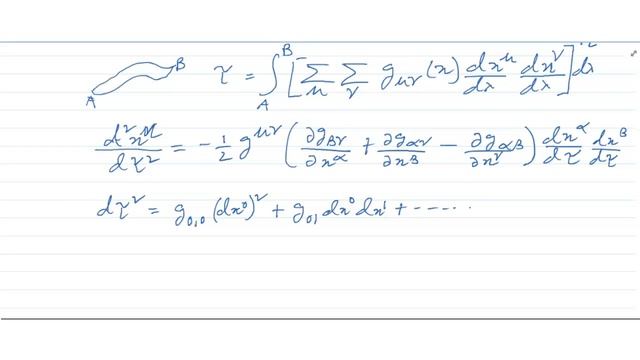 A B τ = ∫_A^B [∑_μ ∑_ν g_{μν}(x) dx^μ/dλ dx^ν/dλ]^{1/2} dλ
d²x^μ/dτ² = -1/2 g^{μν} (∂g_{βν}/∂x^α + ∂g_{αν}/∂x^β - ∂g_{αβ}/∂x^ν) dx^α/dτ dx^β/dτ
dτ² = g_{0,0}(dx⁰)² + g_{0,1} dx⁰dx¹ + ------